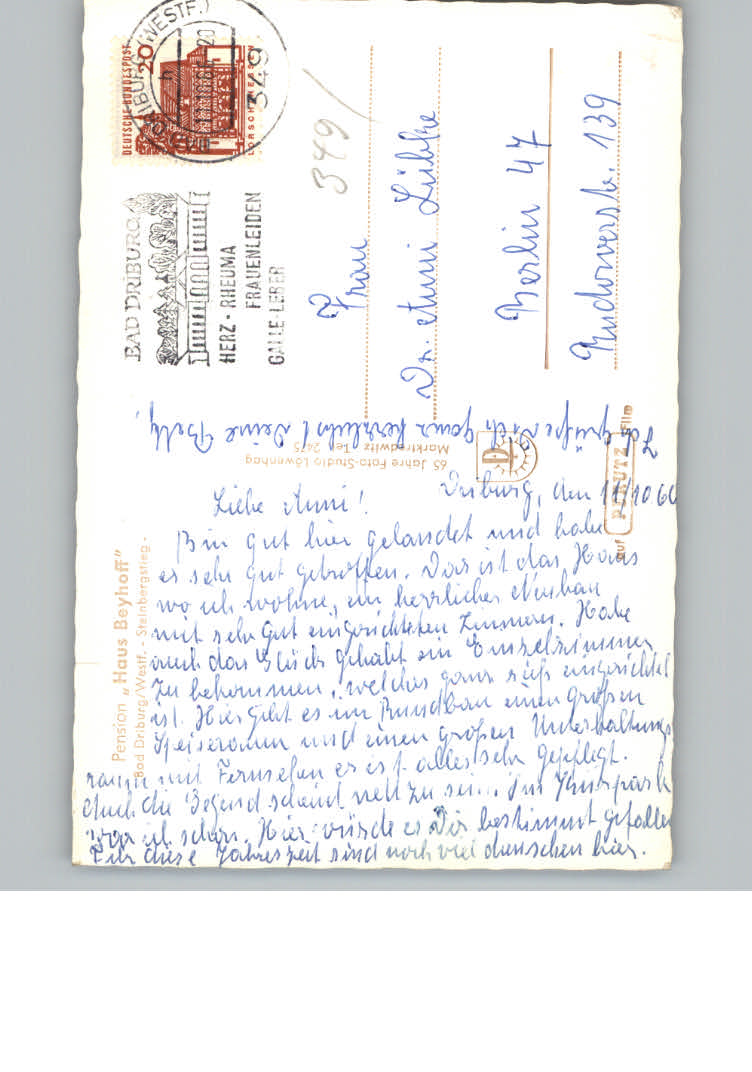 DEUTSCHE BUNDESPOST
20
LORSCH/HESSEN
(WESTF.)
20
349
BAD DRIBURG
HERZ - RHEUMA
FRAUENLEIDEN
GALLE-LEBER
349
Frau
Dr. Anni Lübke
Berlin 47
Rudowerstr. 139
Ich grüße Dich ganz herzlichst Deine Betty.
65 Jahre Foto-Studio Löwenhag
Marktredwitz Tel. 2475
auf PERUTZ Film
Pension „Haus Beyhoff"
Bad Driburg/Westf. - Steinbergstieg -
Driburg, den 11/10 66
Liebe Anni!
Bin gut hier gelandet und habe
es sehr gut getroffen. Das ist das Haus
wo ich wohne, ein herrlicher Neubau
mit sehr gut eingerichteten Zimmern. Habe
auch das Glück gehabt ein Einzelzimmer
zu bekommen, welches ganz süß eingerichtet
ist. Hier gibt es im Rundbau einen großen
Speiseraum und einen großen Unterhaltungs
raum mit Fernsehen es ist alles sehr gepflegt.
Auch die Gegend scheint nett zu sein. Im Kurpark
war ich schon. Hier würde es Dir bestimmt gefallen
Für diese Jahreszeit sind noch viel Menschen hier.